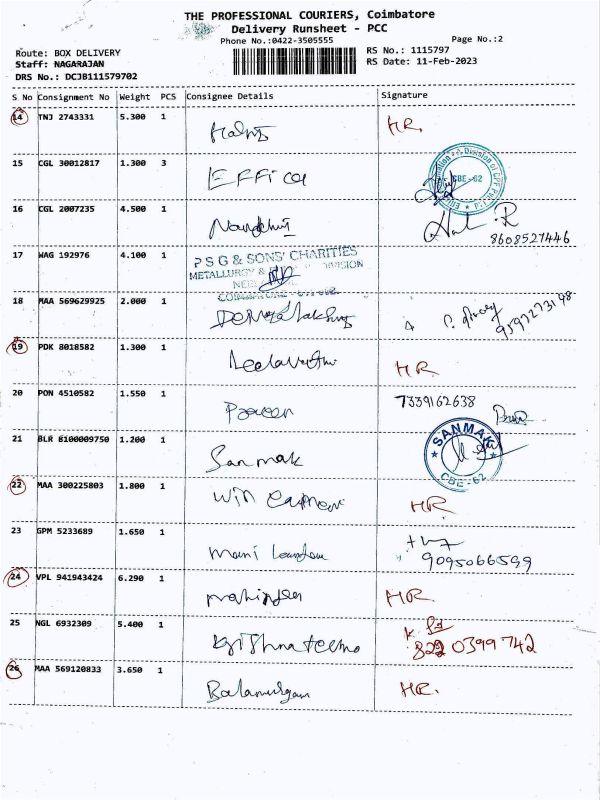 THE PROFESSIONAL COURIERS, Coimbatore
Delivery Runsheet - PCC
Phone No.:0422-3505555
Page No.:2
Route: BOX DELIVERY
Staff: NAGARAJAN
DRS No.: DCJB111579702
RS No.: 1115797
RS Date: 11-Feb-2023
S No Consignment No Weight PCS Consignee Details Signature
14 TNJ 2743331 5.300 1 HR.
15 CGL 30012817 1.300 3 Effica
CBE-62
16 CGL 2007235 4.500 1
8608527446
17 WAG 192976 4.100 1 P S G & SONS' CHARITIES
METALLURGY & DIVISION
18 MAA 569629925 2.000 1
9597273198
19 PDK 8018582 1.300 1 HR
20 PON 4510582 1.550 1 Praveen 7339162638
21 BLR 6100009750 1.200 1 Sanmak
SANMAK
CBE-62
22 MAA 300225803 1.800 1 HR
23 GPM 5233689 1.650 1 Mani
9095066599
24 VPL 941943424 6.290 1 HR.
25 NGL 6932309 5.400 1
8220399742
26 MAA 569120833 3.650 1 Balamurugan HR.